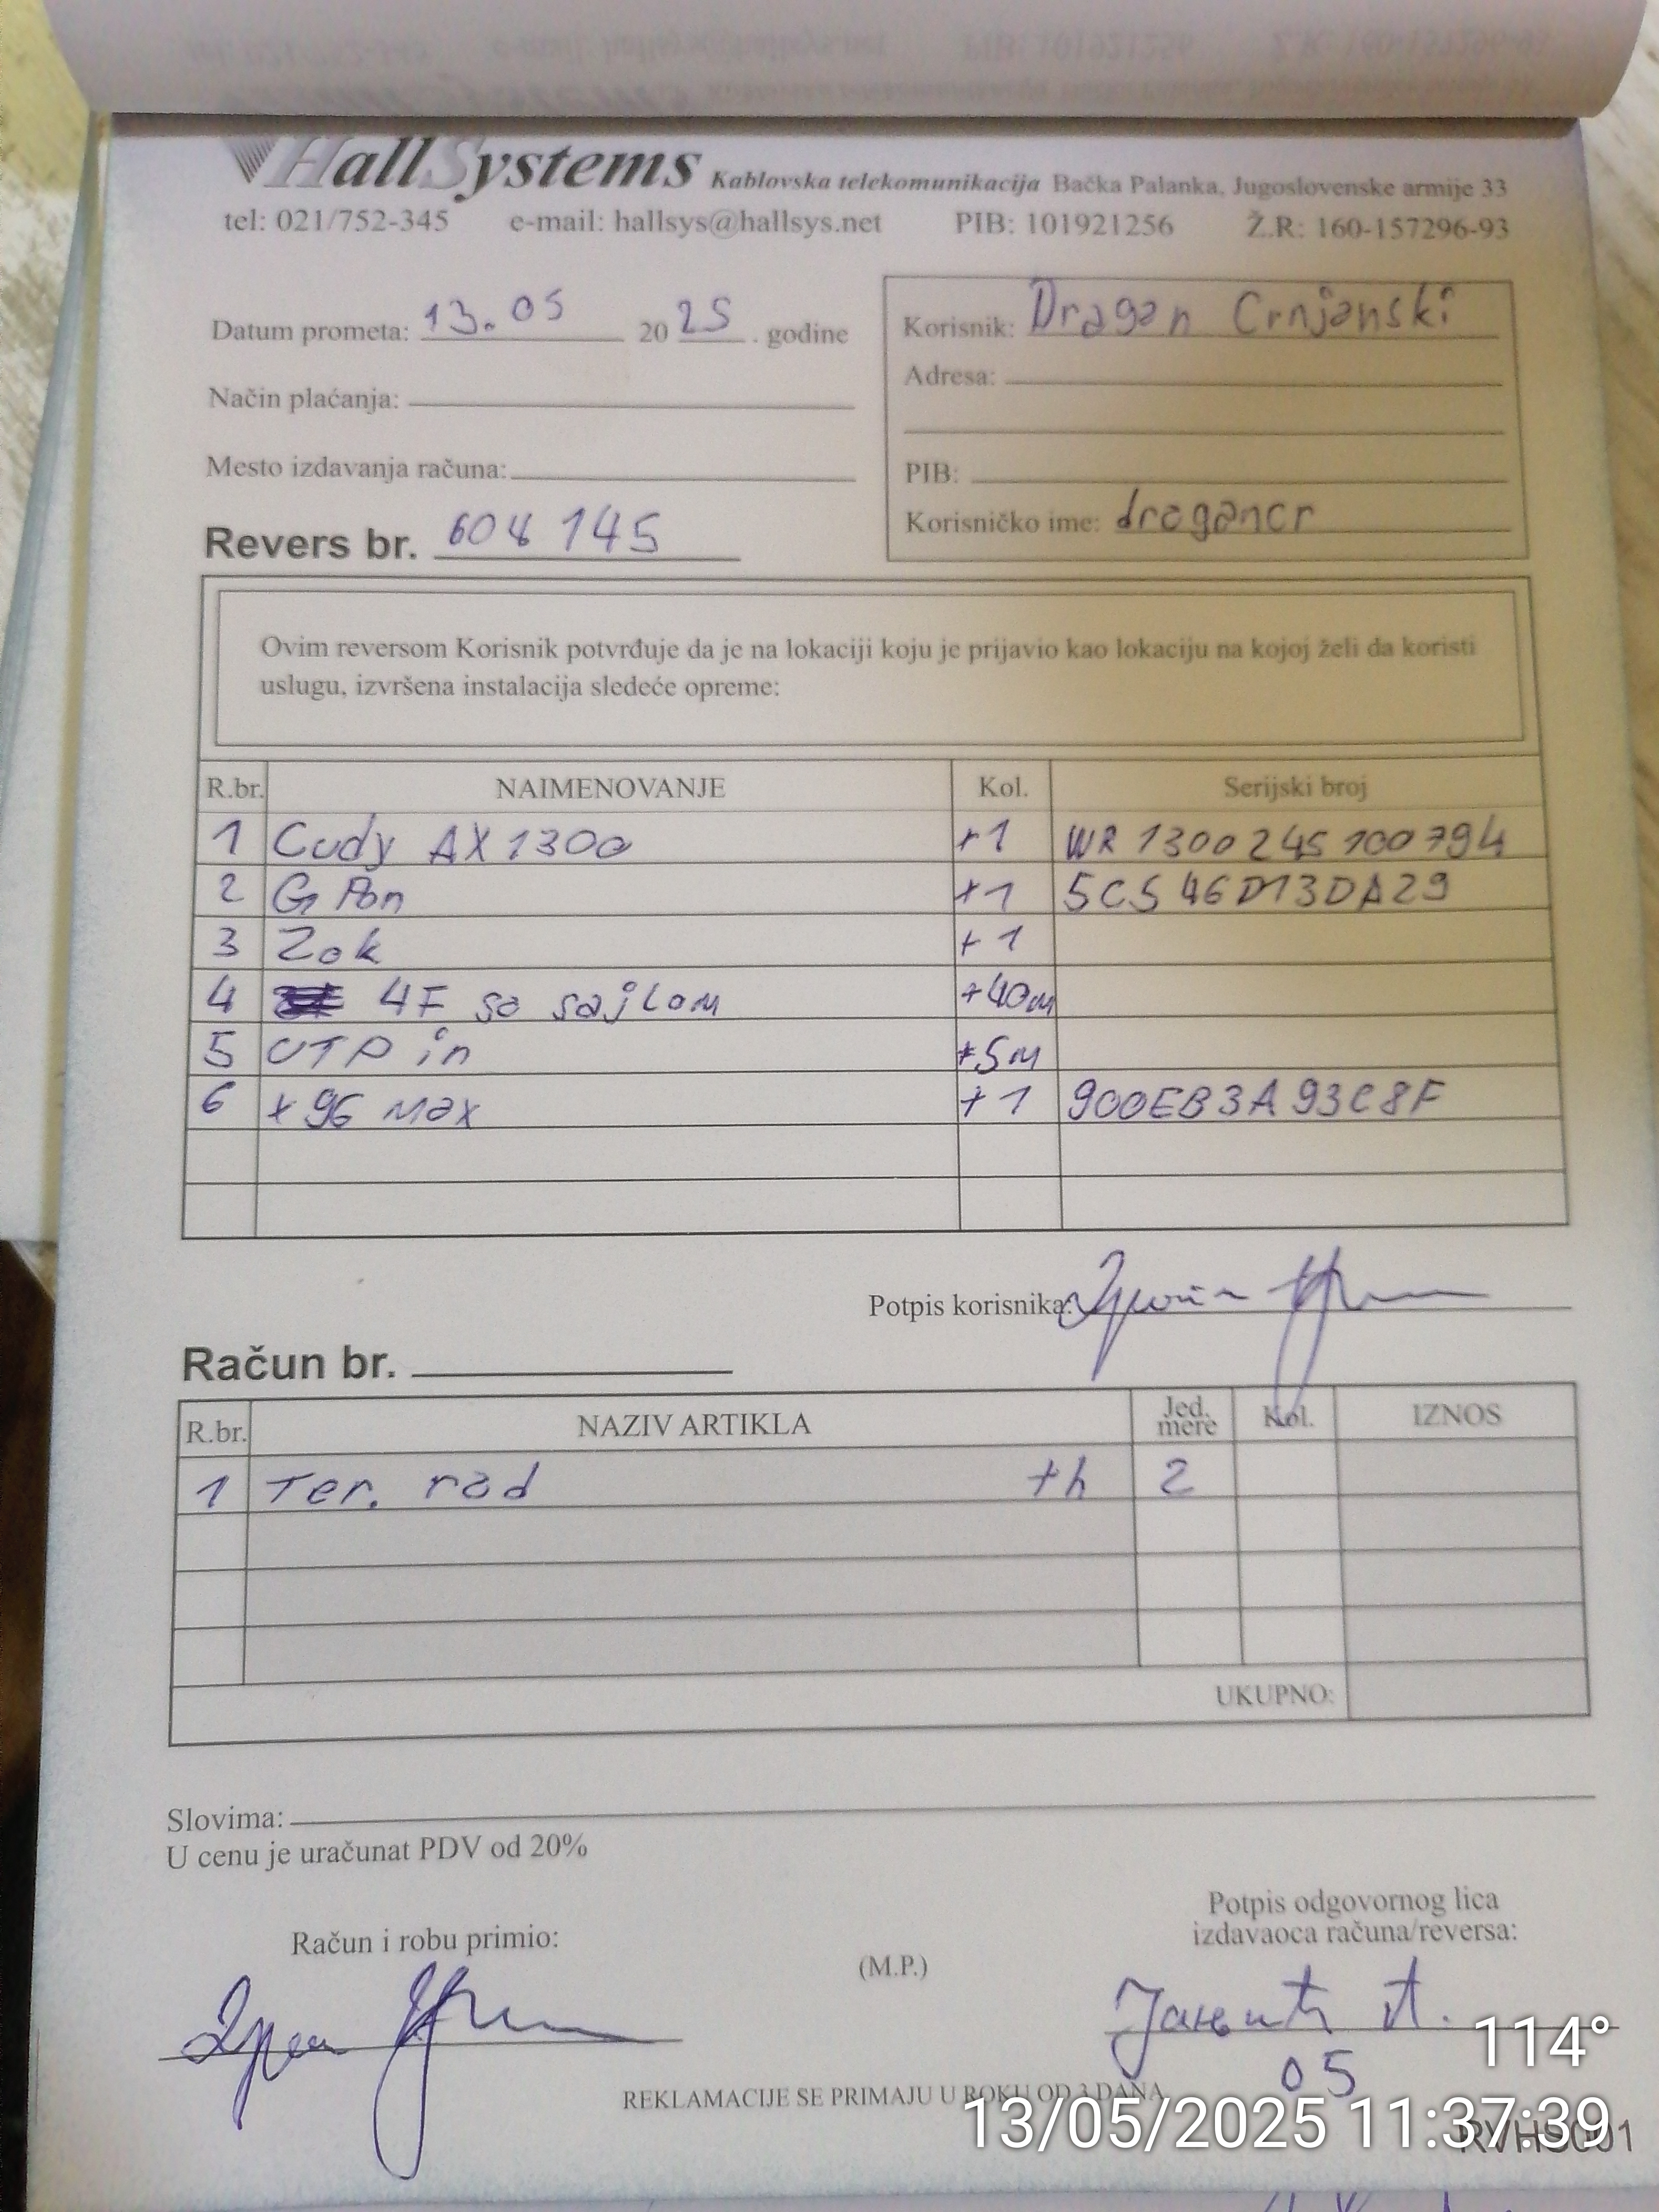 HallSystems Kablovska telekomunikacija Bačka Palanka, Jugoslovenske armije 33
tel: 021/752-345 e-mail: hallsys@hallsys.net PIB: 101921256 Ž.R: 160-157296-93
Datum prometa: 13.05 2025. godine
Korisnik: Dragan Crnjanski
Adresa:
Način plaćanja:
Mesto izdavanja računa:
PIB:
Korisničko ime: dragancr
Revers br. 608 145
Ovim reversom Korisnik potvrđuje da je na lokaciji koju je prijavio kao lokaciju na kojoj želi da koristi
uslugu, izvršena instalacija sledeće opreme:
R.br. NAIMENOVANJE Kol. Serijski broj
1 Cudy AX1300 +1 WR1300245100794
2 G Pon +1 5C546D13DA29
3 Zok +1
4 4F sa sajlom +40m
5 UTP in +5m
6 x96 max +1 900EB3A93C8F
Potpis korisnika:
Račun br.
R.br. NAZIV ARTIKLA Jed. mere Kol. IZNOS
1 Ter. rad +h 2
UKUPNO:
Slovima:
U cenu je uračunat PDV od 20%
Račun i robu primio:
(M.P.)
Potpis odgovornog lica
izdavaoca računa/reversa:
05
REKLAMACIJE SE PRIMAJU U ROKU OD 3 DANA
114°
13/05/2025 11:37:39
RVHS001